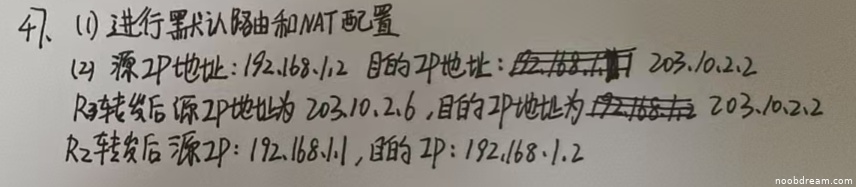 47、(1) 进行默认路由和NAT配置
(2) 源IP地址:192.168.1.2 目的IP地址: 203.10.2.2
R3转发后 源IP地址为 203.10.2.6,目的IP地址为 192.168.1.2 203.10.2.2
R2转发后 源IP: 192.168.1.1,目的IP: 192.168.1.2
noobdream.com